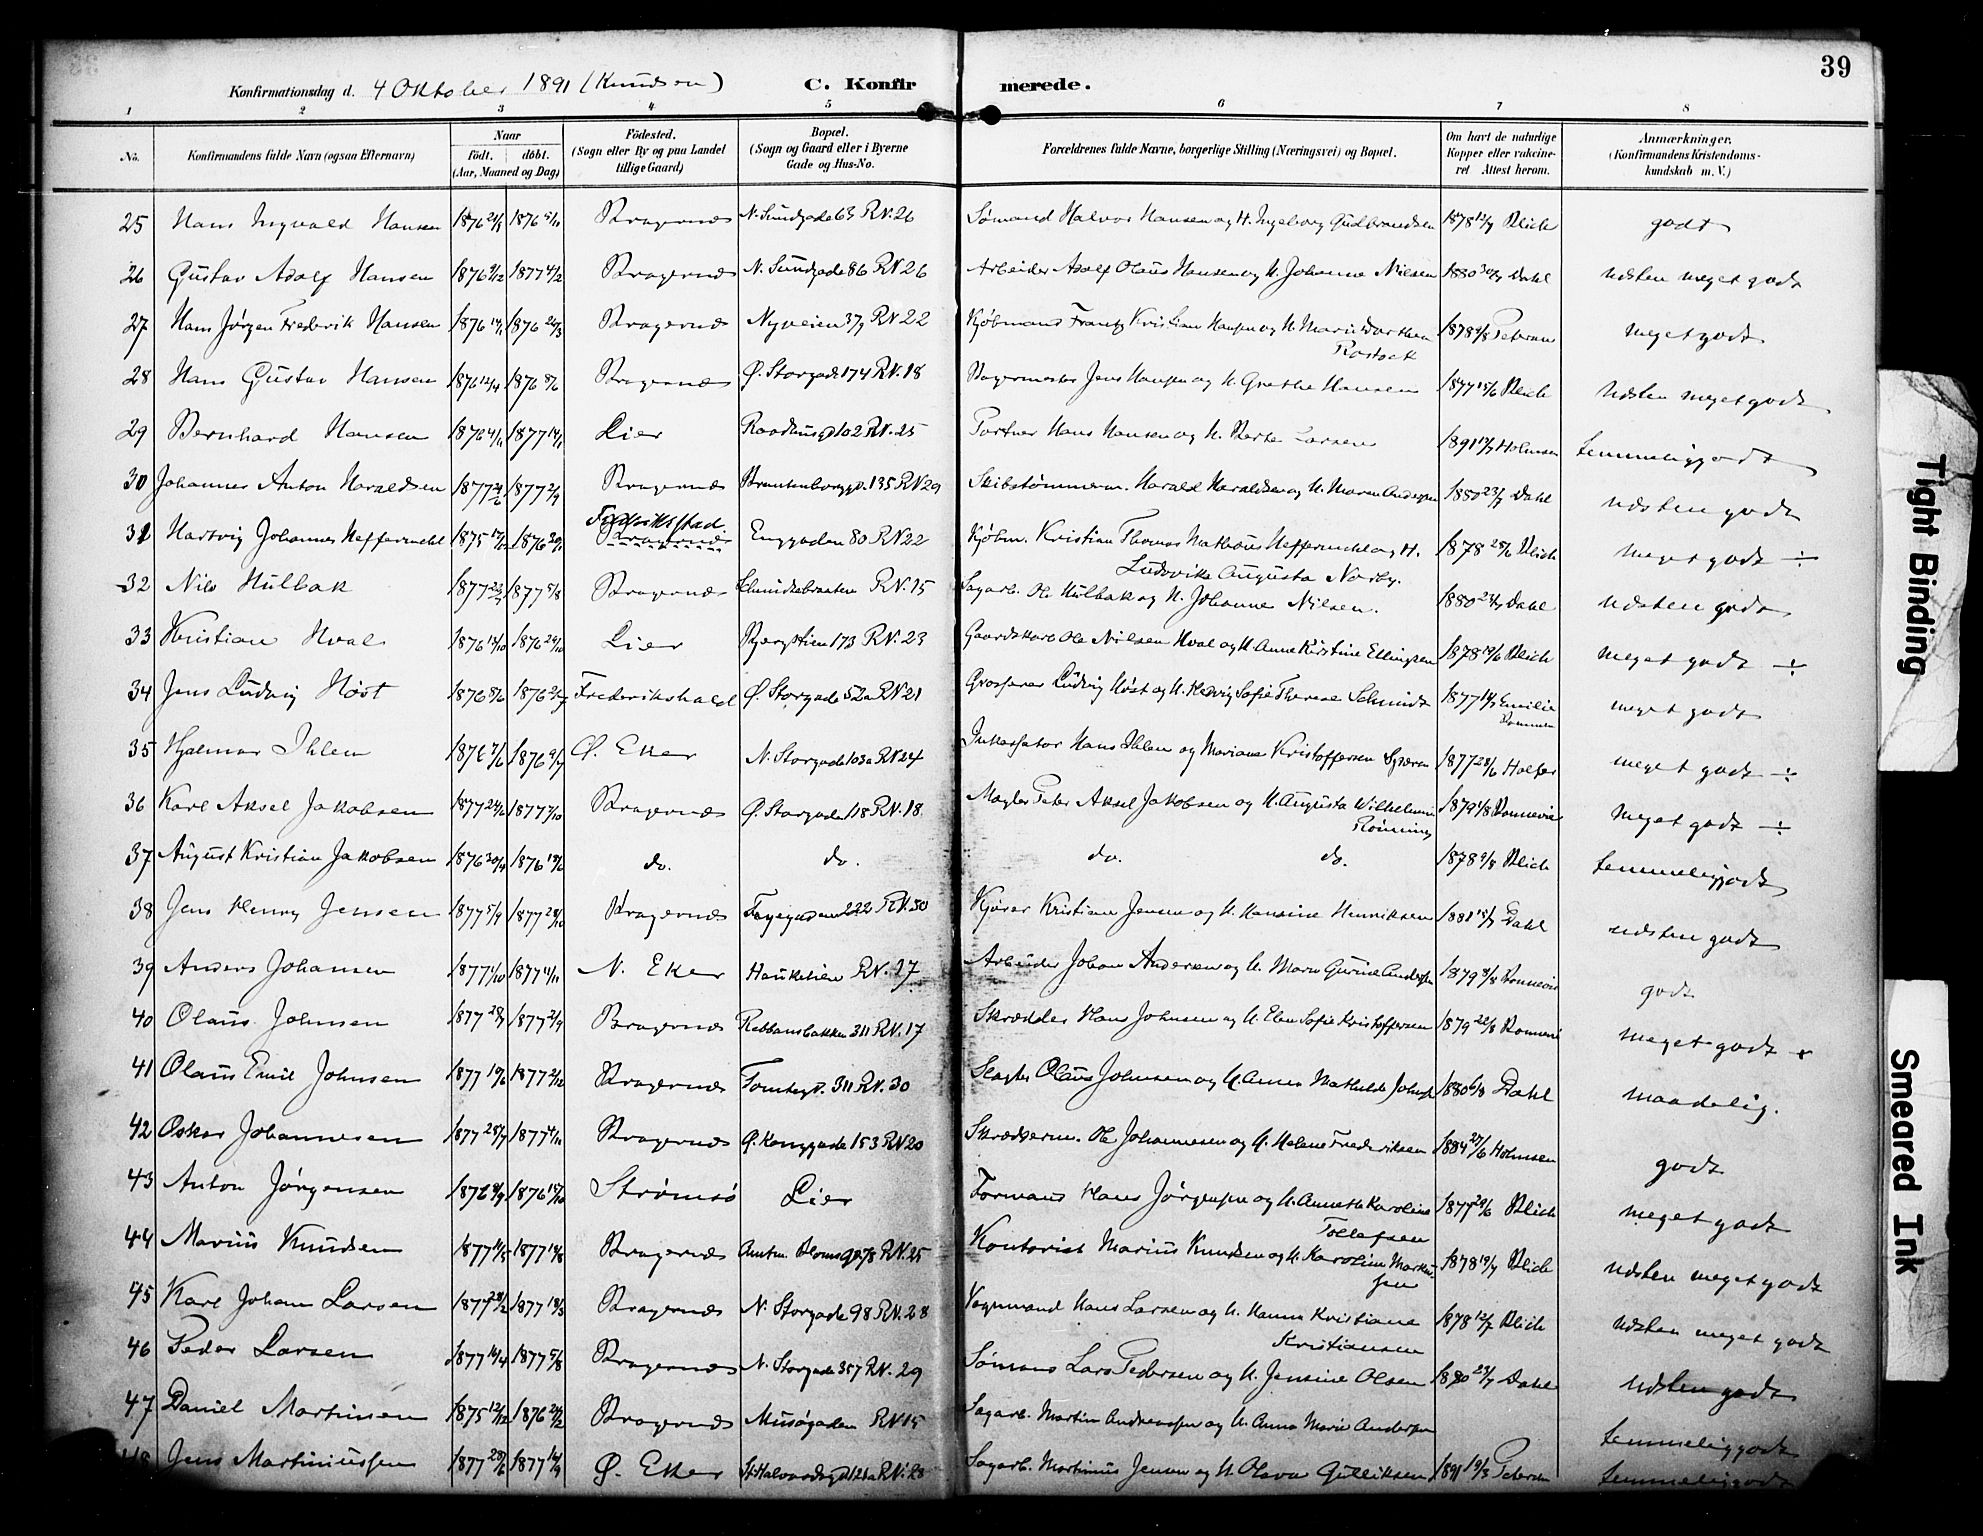 39
Konfirmationsdag d. 4 Oktober 1891 (Knudsen) C. Konfirmerede.
1 2 3 4 5 6 7 8
No. Konfirmandens fulde Navn (ogsaa Efternavn) Naar født. døbt. (Aar, Maaned og Dag) Fødested. (Sogn eller By og paa Landet tillige Gaard) Bopæl. (Sogn og Gaard eller i Byerne Gade og Hus-No. Forældrenes fulde Navne, borgerlige Stilling (Næringsvei) og Bopæl. Om havt de naturlige Kopper eller vakcineret Attest herom. Anmærkninger. (Konfirmandens Kristendomskundskab m. V.)
25 Hans Ingvald Hansen 1876 1876 Bragernæs N. Sundgade 63 RN. 26 Sømand Halvor Hansen og H. Ingeborg Gudbrandsen 1878 12/7 Blich godt
26 Gustav Adolf Hansen 1876 1877 4/2 Bragernæs N. Sundgade 86 RN 26 Arbeider Adolf Olaus Hansen og H. Johanne Nilsen 1880 Dahl næsten meget godt
27 Hans Jørgen Frederik Hansen 1876 1876 26/3 Bragernæs Nyveien 37 RN 22 Kjøbmand Frantz Kristian Hansen og H. Marie Dorthea Rostock 1878 Petersen meget godt
28 Hans Gustav Hansen 1876 12/4 1876 8/6 Bragernæs Ø. Storgade 174 RN. 18 Bagermester Jens Hansen og H. Grethe Hansen 1877 15/6 Blich næsten meget godt
29 Bernhard Hansen 1876 4/11 1877 14/1 Lier Raadhusgd 102 RN. 25 Portner Hans Hansen og H. Berte Larsen 1891 Holmsen temmelig godt
30 Johannes Anton Haraldsen 1877 1877 2/9 Bragernæs Brantenborggd. 135 RN 29 Skibstømmerm. Harald Haraldsen og H. Maren Andersen 1880 23/7 Dahl næsten godt
31 Hartvig Johannes Heffermehl 1875 1876 Fredrikstad Bragernæs Enggaden 80 RN 22 Kjøbm. Kristian Thomas Mathæus Heffermehl og H. Ludovika Augusta Norby. 1878 Blich meget godt ÷
32 Nils Hulbak 1877 1877 5/8 Bragernæs Schmidtebraaten RN. 15 Sagarb. Ole Hulbak og H. Johanne Nilsen. 1880 Dahl næsten godt
33 Kristian Hval 1876 13/10 1876 29/10 Lier Bjergstien 173 RN. 23 Gaardskarl Ole Nilsen Hval og H. Anne Kirstine Ellingsen 1878 Blich meget godt ÷
34 Jens Ludvig Høst 1876 8/6 1876 Frederikshald Ø. Storgade 52a RN 21 Grosserer Ludvig Høst og H. Hedvig Sofie Therese Schmidt 1877 Emilie meget godt
35 Hjalmar Ihlen 1876 7/6 1876 9/7 Ø. Eker N. Storgade 103a RN 24 Inkassator Hans Ihlen og Mariane Kristoffersen 1877 28/6 meget godt ÷
36 Karl Aksel Jakobsen 1877 1877 7/10 Bragernæs Ø. Storgade 118 RN. 18 Mægler Peter Aksel Jakobsen og H. Augusta Wilhelmine Rønning 1879 Bonnevie meget godt ÷
37 August Kristian Jakobsen 1876 30/4 1876 18/6 do. do. do. do. 1878 Blich temmelig godt
38 Jens Henry Jensen 1877 5/9 1877 28/10 Bragernæs 222 RN. 30 Kjører Kristian Jensen og H. Hansine Henriksen 1881 15/7 Dahl næsten godt
39 Anders Johansen 1877 1/10 1877 4/11 N. Eker Haukelien RN. 17 Arbeider Johan Andersen og H. Maren Gurine Andersen 1879 Bonnevie godt
40 Olaus Johnsen 1877 1877 2/9 Bragernæs Rebbansbakken 311 RN. 17 Skrædder Hans Johnsen og H. Elen Sofie Kristoffersen 1879 Bonnevie meget godt +
41 Olaus Emil Johnsen 1877 1877 2/12 Bragernæs Tomtegd. 311 RN. 30 Slagter Olaus Johnsen og H. Anna Mathilde Johnsen 1880 Dahl maadelig.
42 Oskar Johannesen 1877 1877 4/11 Bragernæs Ø. Konggade 153 RN 20 Skrædderm. Ole Johannesen og H. Helene Frederiksen 1884 27/6 Holmsen godt
43 Anton Jørgensen 1876 1876 15/10 Strømsø Lier Formand Hans Jørgensen og H. Annette Karoline Tollefsen 1877 Blich meget godt
44 Marius Knudsen 1877 1877 Bragernæs Amtm. Bloms gd 78 RN. 25 Kontorist Marius Knudsen og H. Karoline Markussen 1878 Blich næsten meget godt
45 Karl Johan Larsen 1877 28/2 1877 Bragernæs N. Storgade 98 RN. 28 Vognmand Hans Larsen og H. Hanna Kristiane Kristiansen 1878 12/7 Blich næsten meget godt
46 Peder Larsen 1877 1877 5/8 Bragernæs N. Storgade 357 RN. 29 Sømand Lars Pedersen og H. Jensine Olsen 1880 23/7 Dahl næsten godt
47 Daniel Martinsen 1875 12/12 1876 Bragernæs Musøgaden RN 15 Sagarb. Martin Andreassen og H. Anna Marie Andersen temmelig godt
48 Jens Martiniussen 1877 28/6 1877 Ø. Eker St. Halvardsgd 121a RN. 28 Sagarb. Martinius Jensen og H. Olava Gulliksen 1891 Petersen temmelig godt
Tight Binding
Smeared Ink